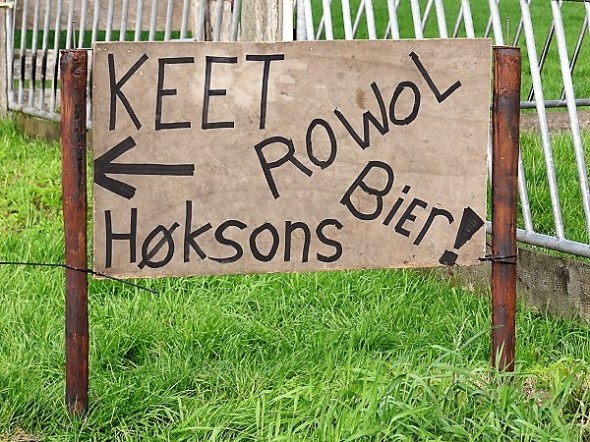 KEET
ROWOL
Bier!
Høksons